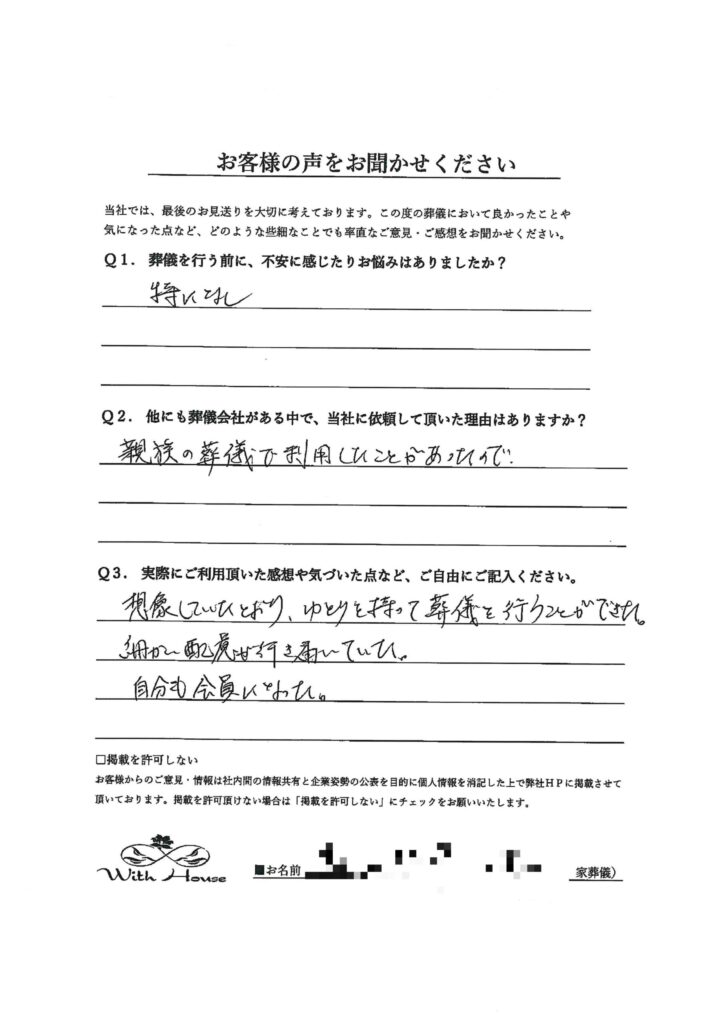 お客様の声をお聞かせください
当社では、最後のお見送りを大切に考えております。この度の葬儀において良かったことや
気になった点など、どのような些細なことでも率直なご意見・ご感想をお聞かせください。
Q1. 葬儀を行う前に、不安に感じたりお悩みはありましたか？
特になし
Q2. 他にも葬儀会社がある中で、当社に依頼して頂いた理由はありますか？
親族の葬儀で利用したことがあったので.
Q3. 実際にご利用頂いた感想や気づいた点など、ご自由にご記入ください。
想像していたとおり、ゆとりを持って葬儀を行うことができた。
細かい配慮が行き届いていた。
自分も会員になった。
□掲載を許可しない
お客様からのご意見・情報は社内間の情報共有と企業姿勢の公表を目的に個人情報を消記した上で弊社HPに掲載させて
頂いております。掲載を許可頂けない場合は「掲載を許可しない」にチェックをお願いいたします。
With House
■お名前
家葬儀）